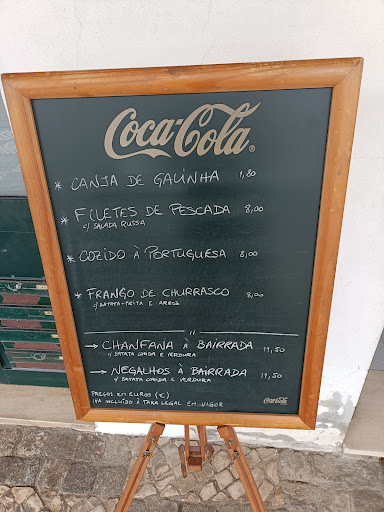 Coca-Cola®
* CANJA DE GALINHA 1,80
* FILETES DE PESCADA 8,00
c/ SALADA RUSSA
* COZIDO À PORTUGUESA 8,00
* FRANGO DE CHURRASCO 8,00
c/ BATATA-FRITA E ARROZ
"
→ CHANFANA À BAIRRADA 11,50
c/ BATATA COZIDA E VERDURA
→ NEGALHOS À BAIRRADA 11,50
c/ BATATA COZIDA E VERDURA
PREÇOS EM EUROS (€)
IVA INCLUÍDO À TAXA LEGAL EM VIGOR
Coca-Cola